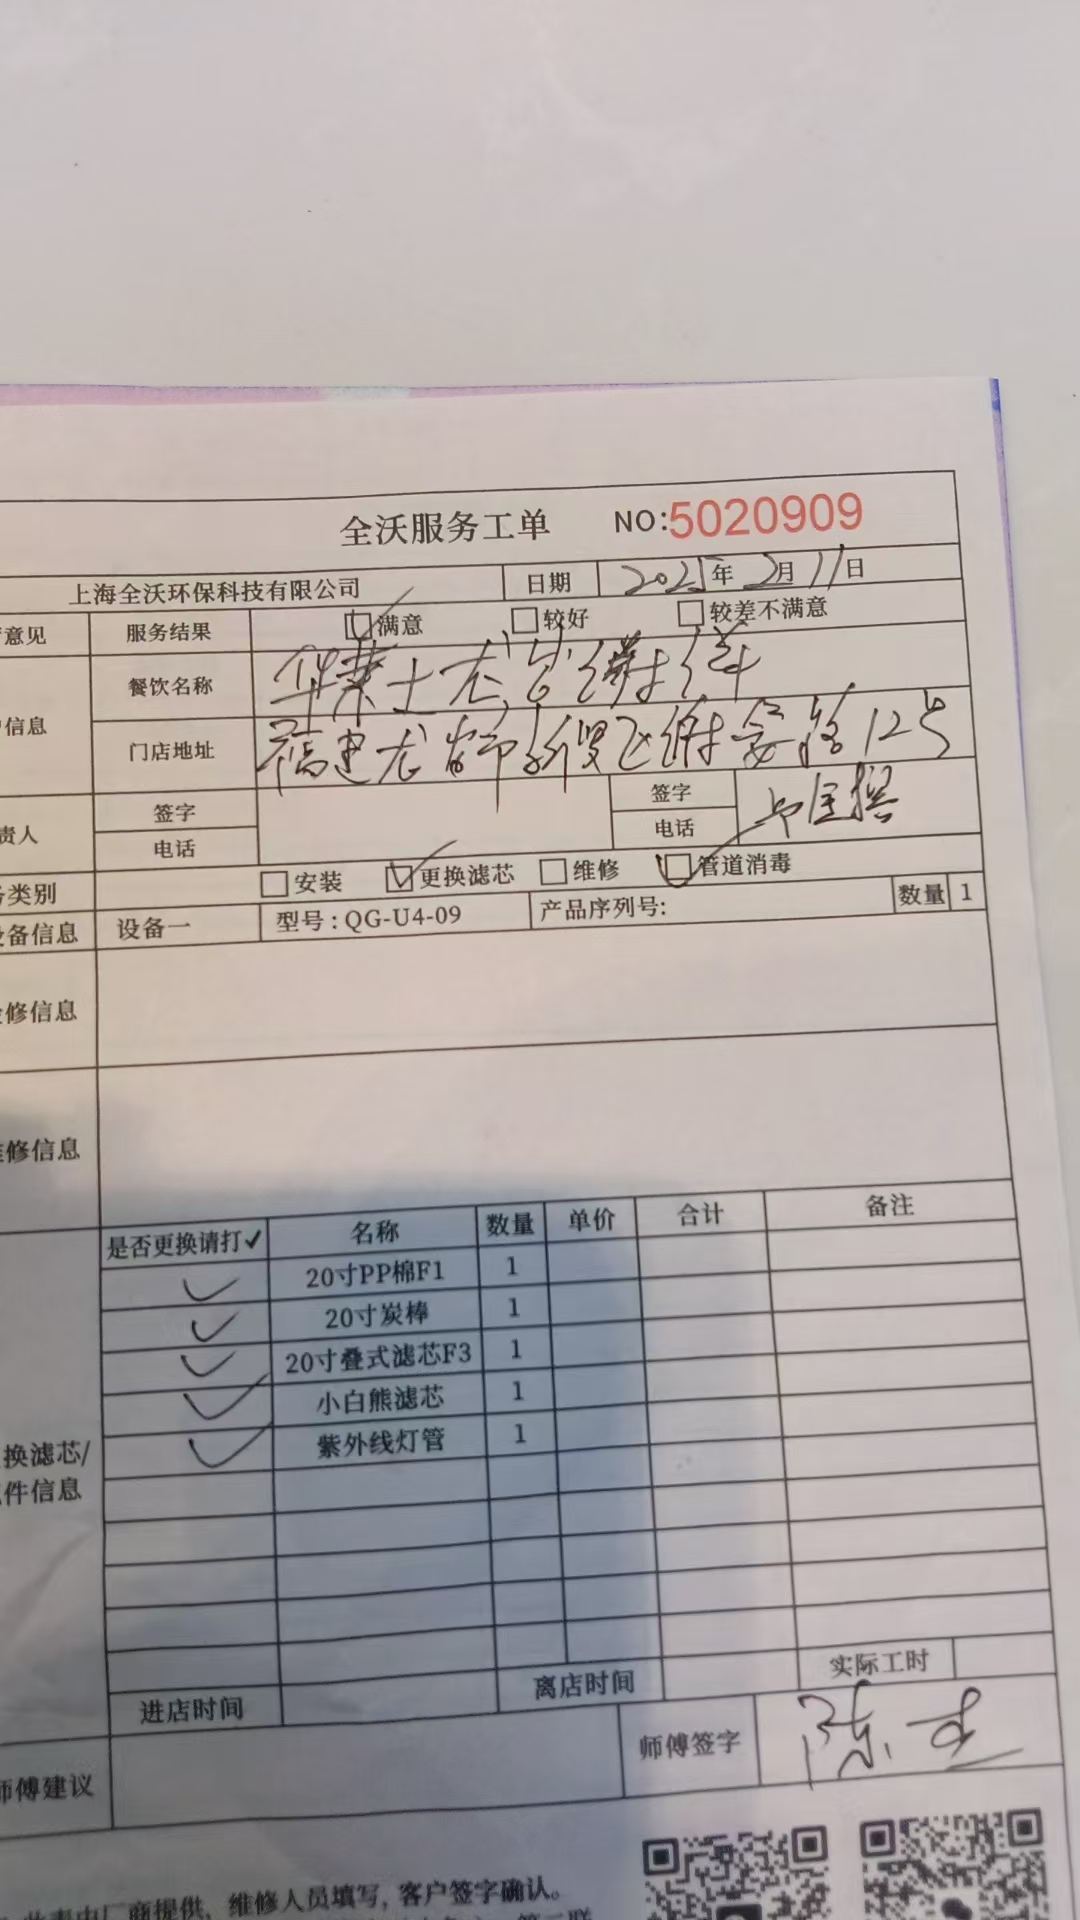 全沃服务工单 NO:5020909
上海全沃环保科技有限公司 日期 2025年2月11日
意见 服务结果 满意 较好 较差不满意
信息 餐饮名称 华莱士龙岩
门店地址 福建龙岩市新罗区 路12号
责人 签字 签字
电话 电话
类别 安装 更换滤芯 维修 管道消毒
设备信息 设备一 型号：QG-U4-09 产品序列号: 数量 1
修信息
维修信息
是否更换请打✓ 名称 数量 单价 合计 备注
✓ 20寸PP棉F1 1
✓ 20寸炭棒 1
✓ 20寸叠式滤芯F3 1
✓ 小白熊滤芯 1
✓ 紫外线灯管 1
换滤芯/
件信息
进店时间 离店时间 实际工时
师傅建议 师傅签字 陈
由厂商提供，维修人员填写，客户签字确认。